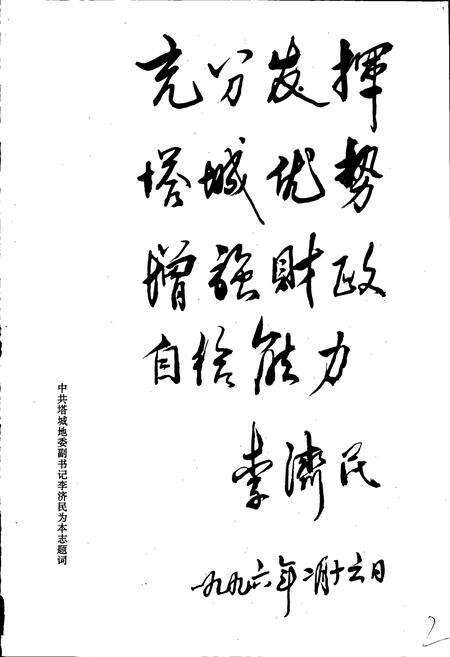 充分发揮
塔城优势
增强财政
自给能力
李濟民
一九九六年二月十六日
中共塔城地委副书记李济民为本志题词